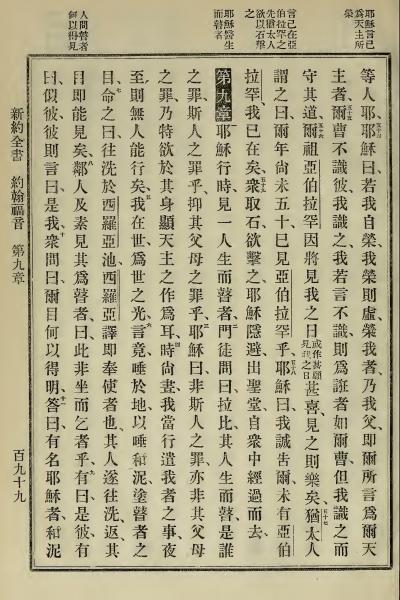 耶穌言己
爲天主所
榮
言己在亞
伯拉罕之
先猶太人
欲以石擊
之
耶穌醫生
而瞽者
人問瞽者
何以得見
等人耶、耶穌曰若我自榮、我榮則虛、榮我者乃我父、卽爾所言爲爾天
主者、爾曹不識彼、我識之、我若言不識、則爲誑者如爾曹、但我識之而
守其道、爾祖亞伯拉罕因將見我之日或作甚願見我之日甚喜、見之則樂矣、猶太人
謂之曰、爾年尚未五十、已見亞伯拉罕乎、耶穌曰、我誠告爾、未有亞伯
拉罕、我已在矣、衆取石欲擊之、耶穌隱避出聖堂、自衆中經過而去、
第九章 耶穌行時、見一人生而瞽者、門徒問曰、拉比、其人生而瞽、是誰
之罪、斯人之罪乎、抑其父母之罪乎、耶穌曰、非斯人之罪、亦非其父母
之罪、乃特欲於其身顯天主之作爲耳、時尚晝、我當行遣我者之事、夜
至則無人能行矣、我在世、爲世之光、言竟、唾於地、以唾和泥、塗瞽者之
目、命之曰、往洗於西羅亞池、西羅亞譯卽奉使者也、其人遂往洗、返、其
目卽能見矣、鄰人及素見其爲瞽者、曰、此非坐而乞者乎、有曰、是彼、有
曰、似彼、彼則言曰、是我、衆問曰、爾目何以得明、答曰、有名耶穌者、和泥
新約全書 約翰福音 第九章
百九十九